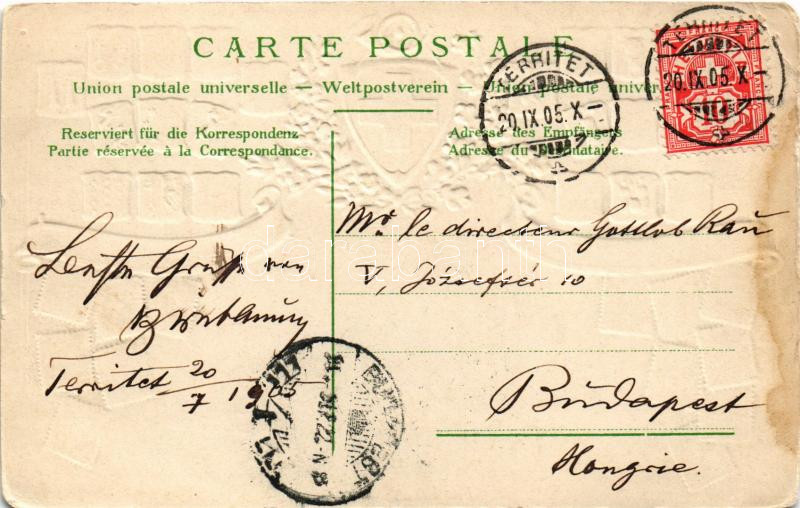 CARTE POSTALE
Union postale universelle – Weltpostverein – Union postale univer
Reserviert für die Korrespondenz
Partie réservée à la Correspondance.
Adresse des Empfängers
Adresse du destinataire.
TERRITET
20.IX.05.X
TERRITET
20.IX.05.X
10
Mr. le directeur Gottlob Rau
V, József tér 10
Budapest
Hongrie.
Gruss von
Territet 20/7 1905
BUDAPEST
darabanth